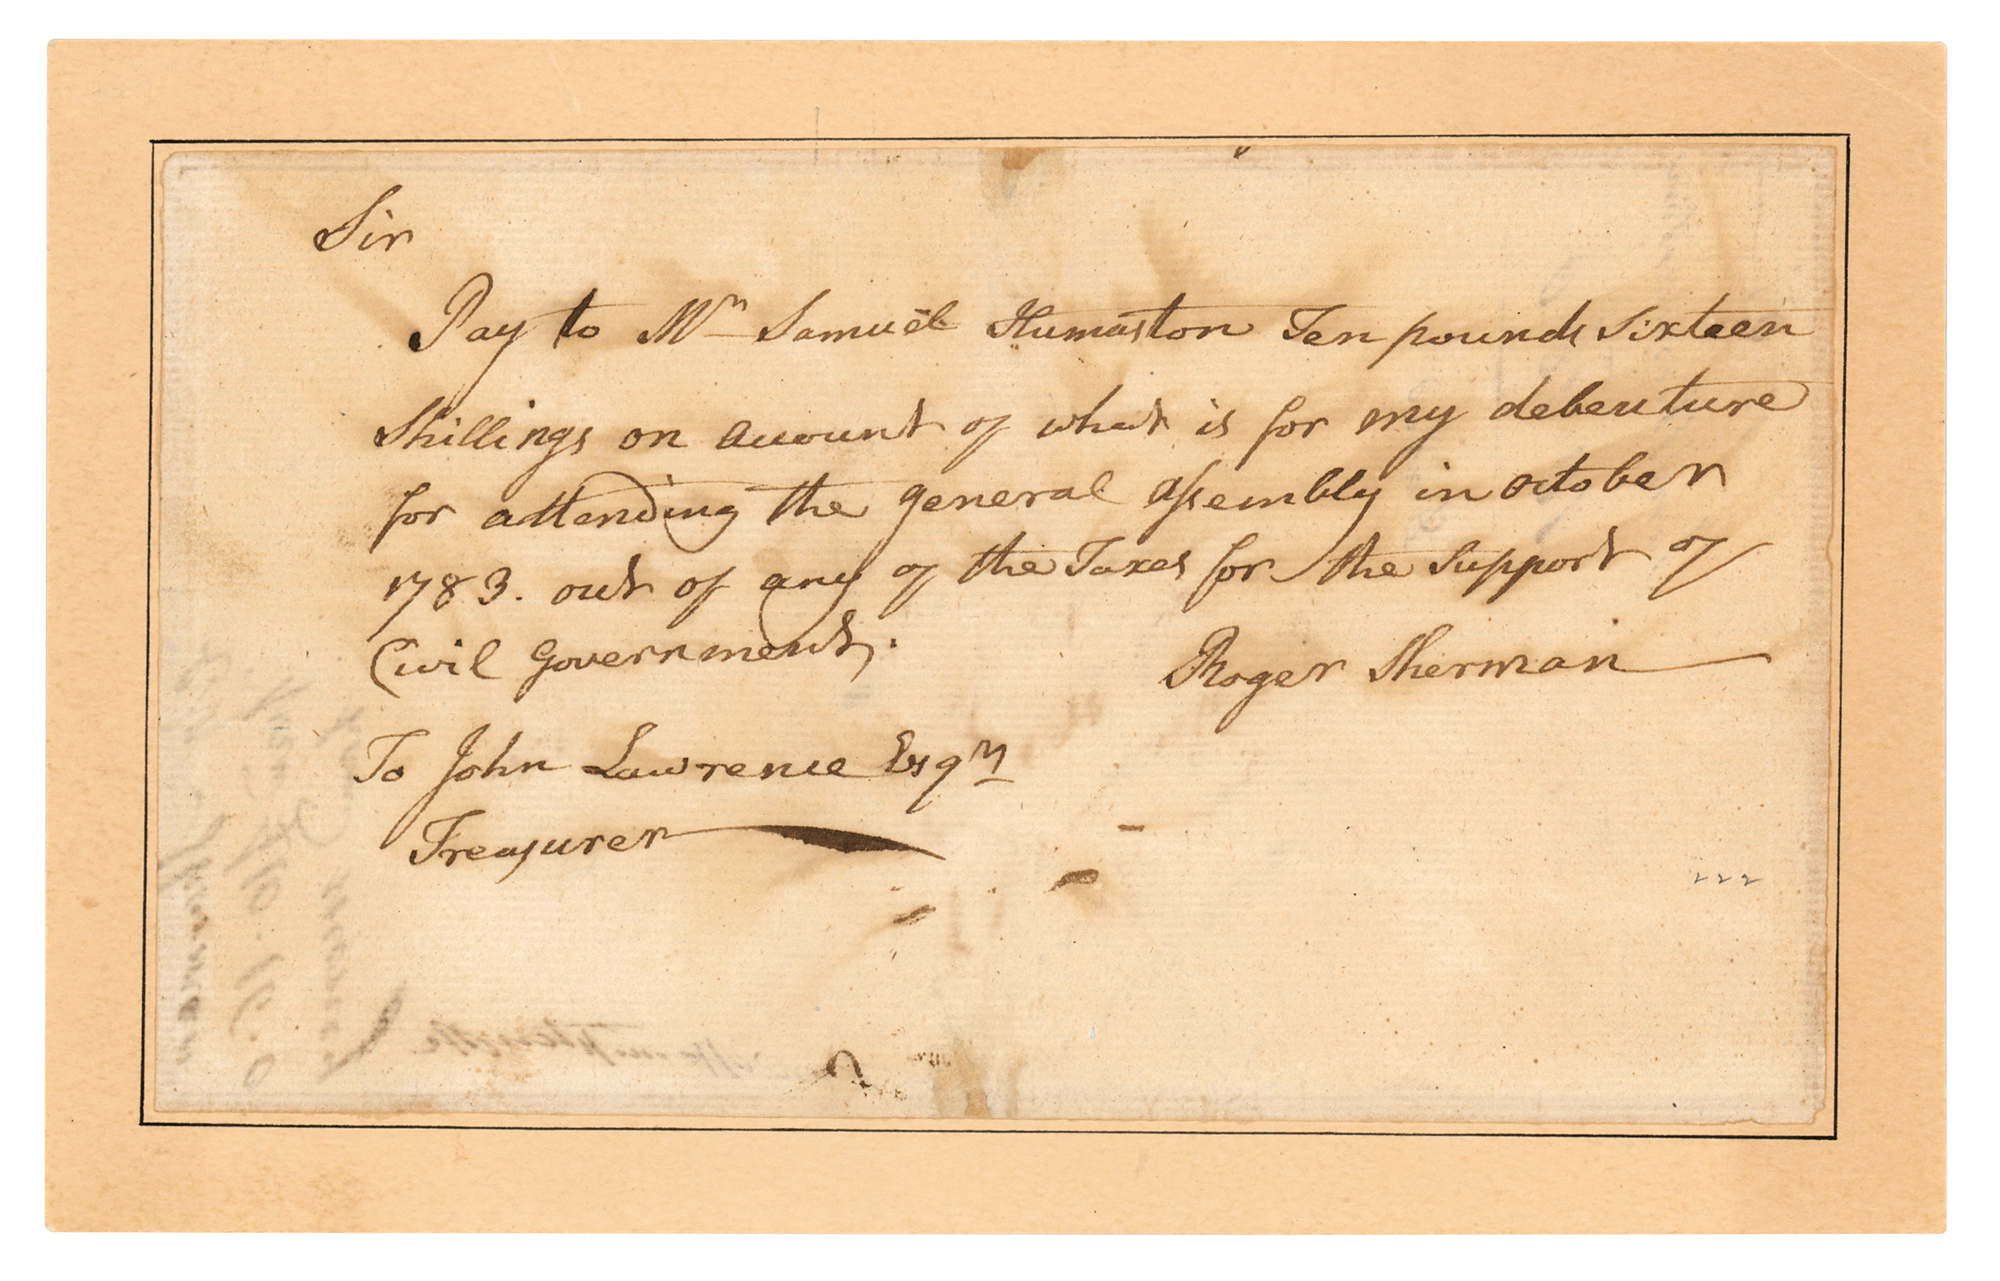 Sir
Pay to Mr Samuel Humaston Ten pounds Sixteen
Shillings on account of what is for my debenture
for attending the general assembly in october
1783. out of any of the Taxes for the Support of
Civil Government.
Roger Sherman
To John Lawrence Esqr
Treasurer